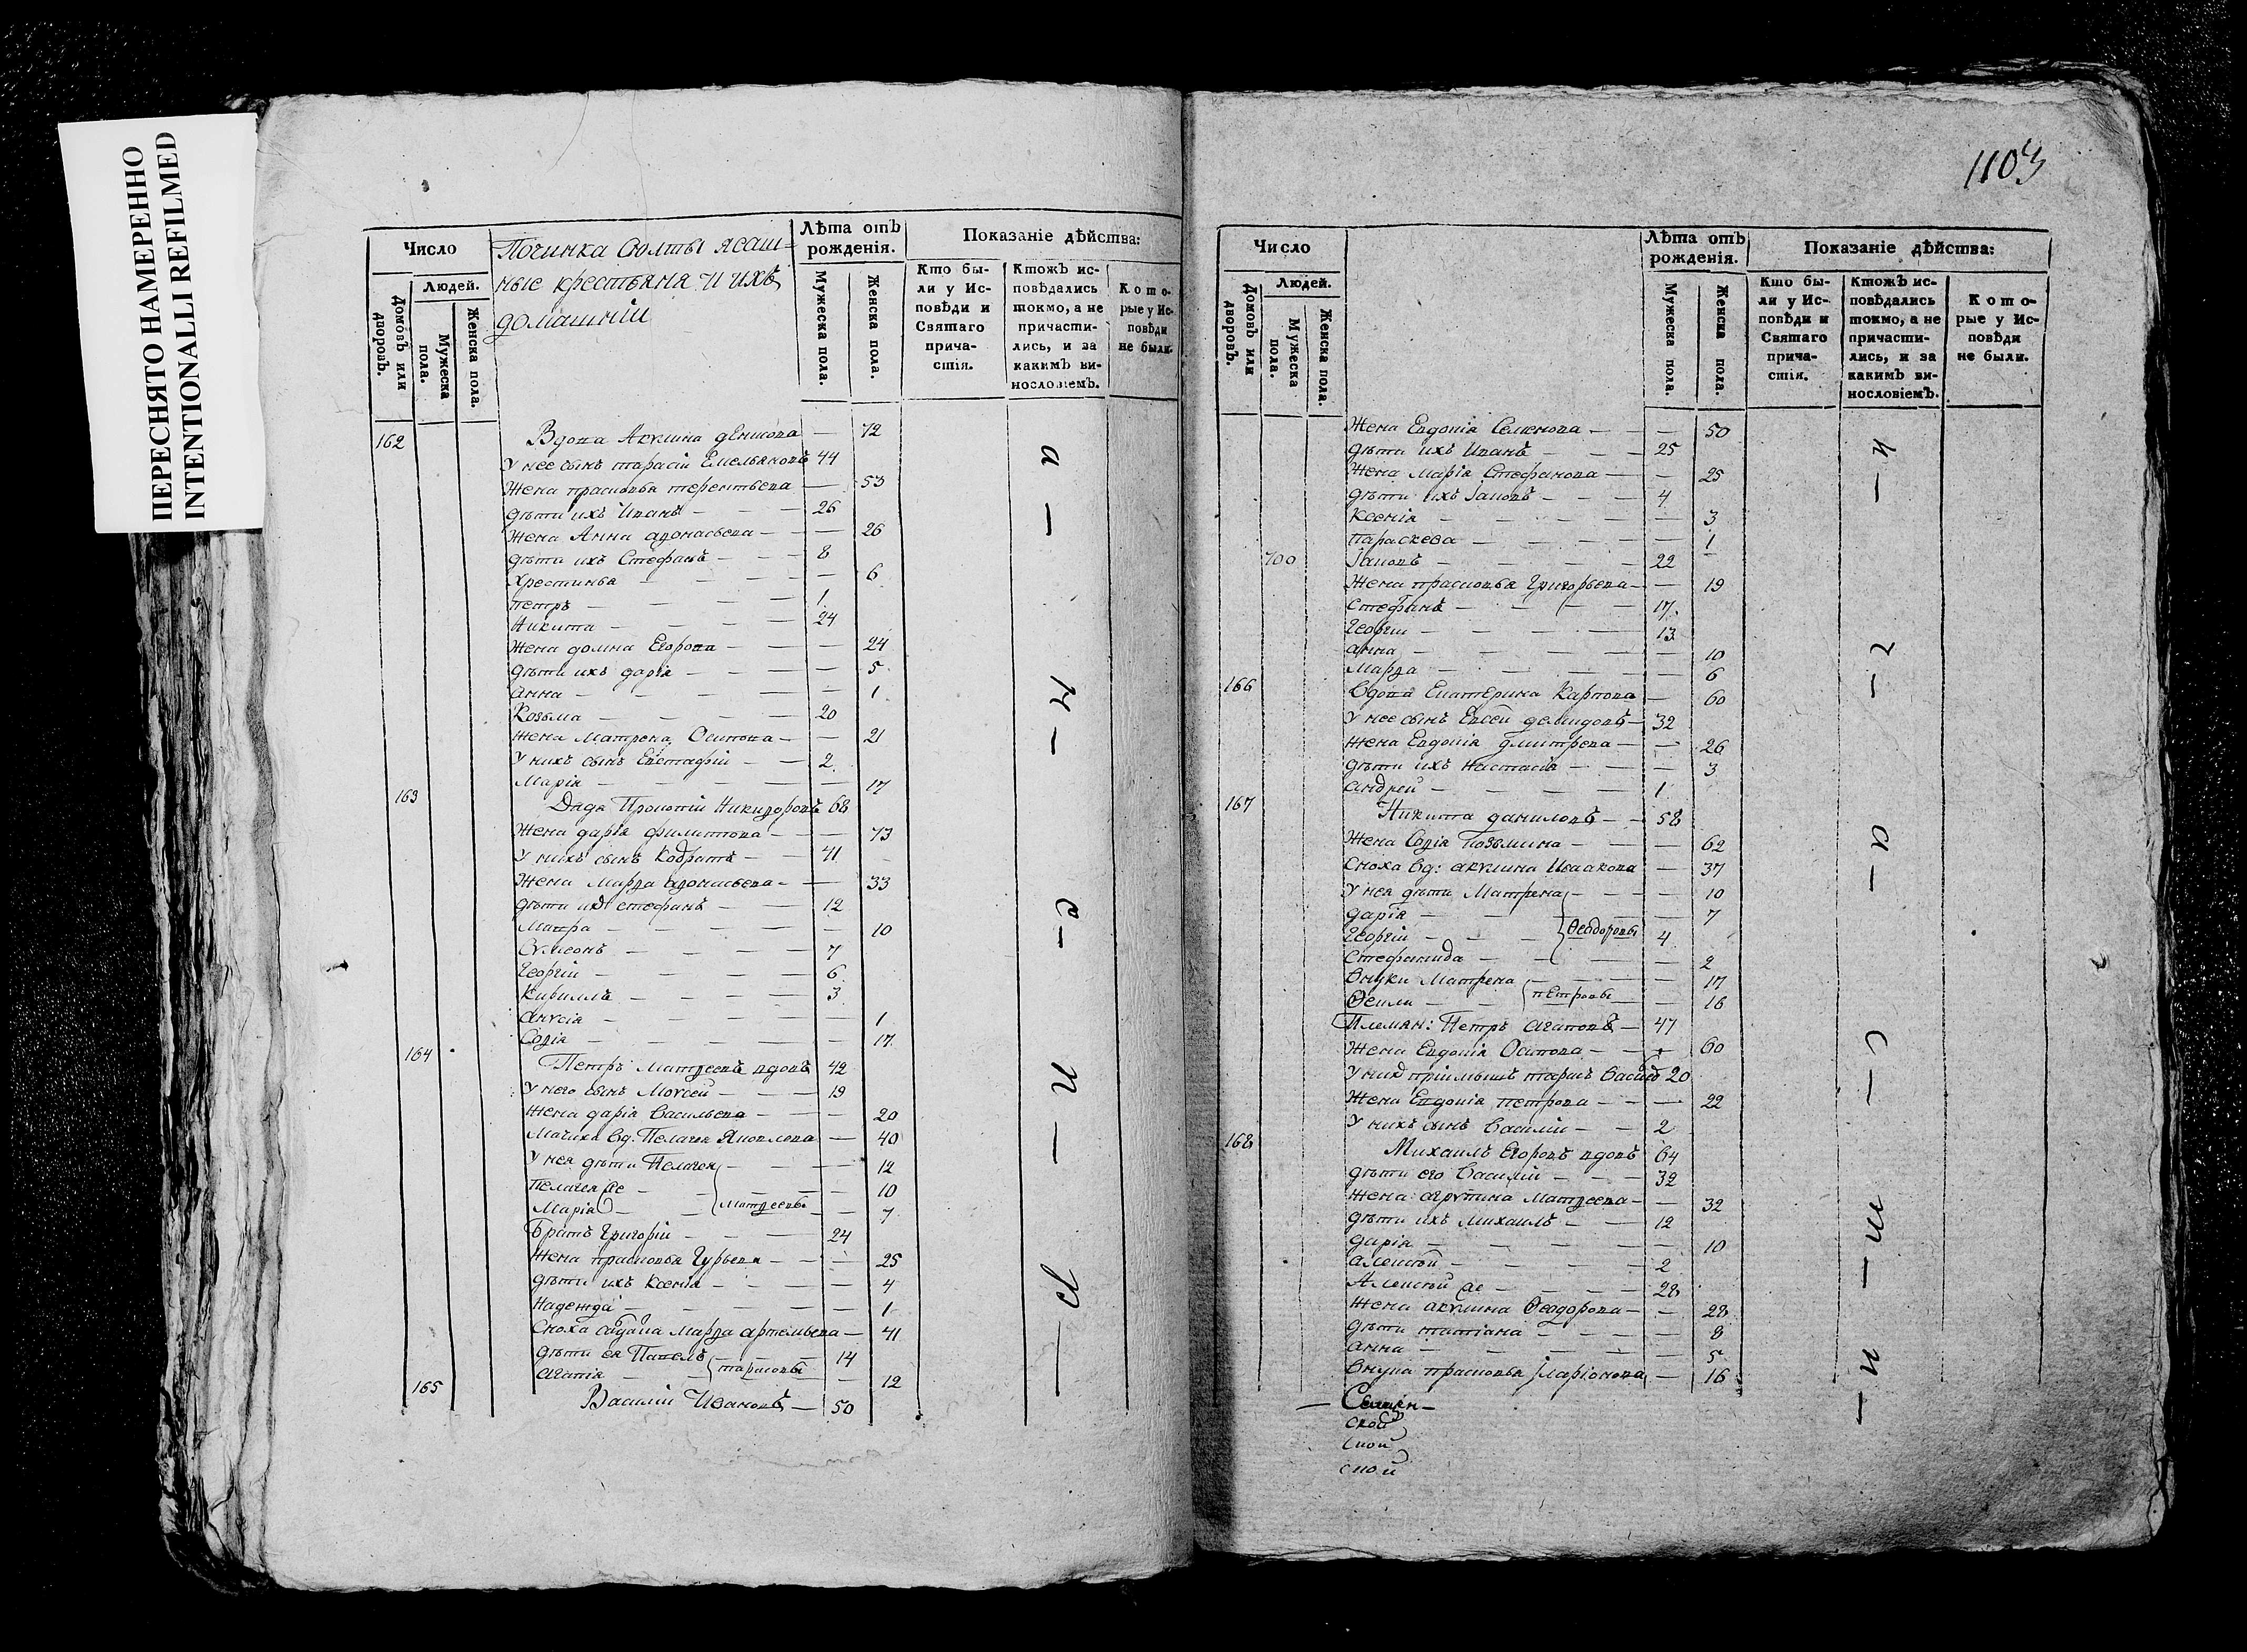 ПЕРЕСНЯТО НАМЕРЕННО
INTENTIONALLI REFILMED
1103
Число
Людей.
Домовъ или дворовъ.
Мужеска пола.
Женска пола.
Починка Сюлты ясаш-
ные крестьяня и ихъ
домашніи
Лѣта отъ рожденія.
Мужеска пола.
Женска пола.
Показаніе дѣйства:
Кто бы-
ли у Ис-
повѣди и
Святаго
прича-
стія.
Ктожъ ис-
повѣдались
токмо, а не
причасти-
лись, и за
какимъ ви-
нословіемъ.
Кото-
рые у Ис-
повѣди
не были.
162 Вдова Акѵлина — 72
У нее сынъ тарасіи Емельяновъ 44
Жена прасковья терентьева — 53
дѣти ихъ Иванъ — — — 26
Жена Анна афонасьева — — — 26
дѣти ихъ Стефанъ — — 8
Хрестинья — — — — — 6
петръ — — — — 1
Никита — — — — 24
Жена домна Егорова — — — 24
дѣти ихъ дарія — — — 5
анна — — — — — 1
Козьма — — — — 20
Жена Матрена Осипова — — 21
У нихъ сынъ Евстафіи — — 2
Марія — — — — — 17
163 Дядя Прокопіи Никифоровъ 68
Жена дарія филиппова — — — 73
У нихъ сынъ Кодратъ — — 41
Жена Марфа афонасьева — — 33
дѣти их стефанъ — — 12
Мавра — — — — — 10
Сѵмеонъ — — — — 7
Георгіи — — — — 6
Кириллъ — — — — 3
анисія — — — — — 1
Софія — — — — — 17
164 Петръ Матфеевъ вдовъ 42
У него сынъ Моѵсей — — — 19
Жена дарія Васильева — — — 20
Мачиха вд. Пелагея Яковлева — 40
У нея дѣти Пелагея — — — 12
Пелагея ж — — — 10
Марія — — матфеевы — 7
Братъ Григоріи — — — 24
Жена прасковья Гурьева — — — 25
дѣти ихъ Ксенія — — — — 4
Надежда — — — — — 1
Сноха вдова Марфа артемьева — 41
дѣти ея Павелъ — — — 14
агапія — — тарасовы — 12
165 Василіи Ивановъ — 50
Число
Людей.
Домовъ или дворовъ.
Мужеска пола.
Женска пола.
Лѣта отъ рожденія.
Мужеска пола.
Женска пола.
Показаніе дѣйства:
Кто бы-
ли у Ис-
повѣди и
Святаго
прича-
стія.
Ктожъ ис-
повѣдались
токмо, а не
причасти-
лись, и за
какимъ ви-
нословіемъ.
Кото-
рые у Ис-
повѣди
не были.
Жена Евдокія Семенова — — — 50
дѣти ихъ Иванъ — — — 25
Жена Марія Стефанова — — 25
дѣти ихъ Іаковъ — — — 4
Ксенія — — — — — 3
Параскева — — — — — 1
700 Іаковъ — — — — — 22
Жена прасковья Григорьева — — 19
Стефанъ — — — — 17
Георгіи — — — — 13
анна — — — — — 10
Марфа — — — — — 6
166 Вдова Екатерина Карпова — 60
У нее сынъ Евсеи демидовъ — 32
Жена Евдокія дмитрева — — 26
дѣти ихъ Настасія — — — 3
андреи — — — — 1
167 Никита даниловъ — — 58
Жена Софія Козьмина — — — 62
Сноха вд: акѵлина Исаакова — 37
У нея дѣти Матрена — — — 10
дарія — — — — 7
Георгіи — — — Ѳеодоровы 4
Стефанида — — — — 2
Внуки Матрена — — — — 17
Ѳекла — — петровы — 16
Племян: Петръ агаповъ — 47
Жена Евдокія Осипова — — — 60
20
Жена Евдокія петрова — — — 22
У нихъ сынъ Василіи — — 2
168 Михаилъ Егоровъ вдовъ 64
дѣти его Василіи — — — 32
Жена агрѵпина Матфеева — — 32
дѣти ихъ Михаилъ — — 12
дарія — — — — — 10
алексеи — — — — 2
Алексеи ж — — — — 28
Жена акѵлина Ѳеодорова — — 28
дѣти татіана — — — — 8
анна — — — — — 5
Внука прасковья Іларіонова — 16